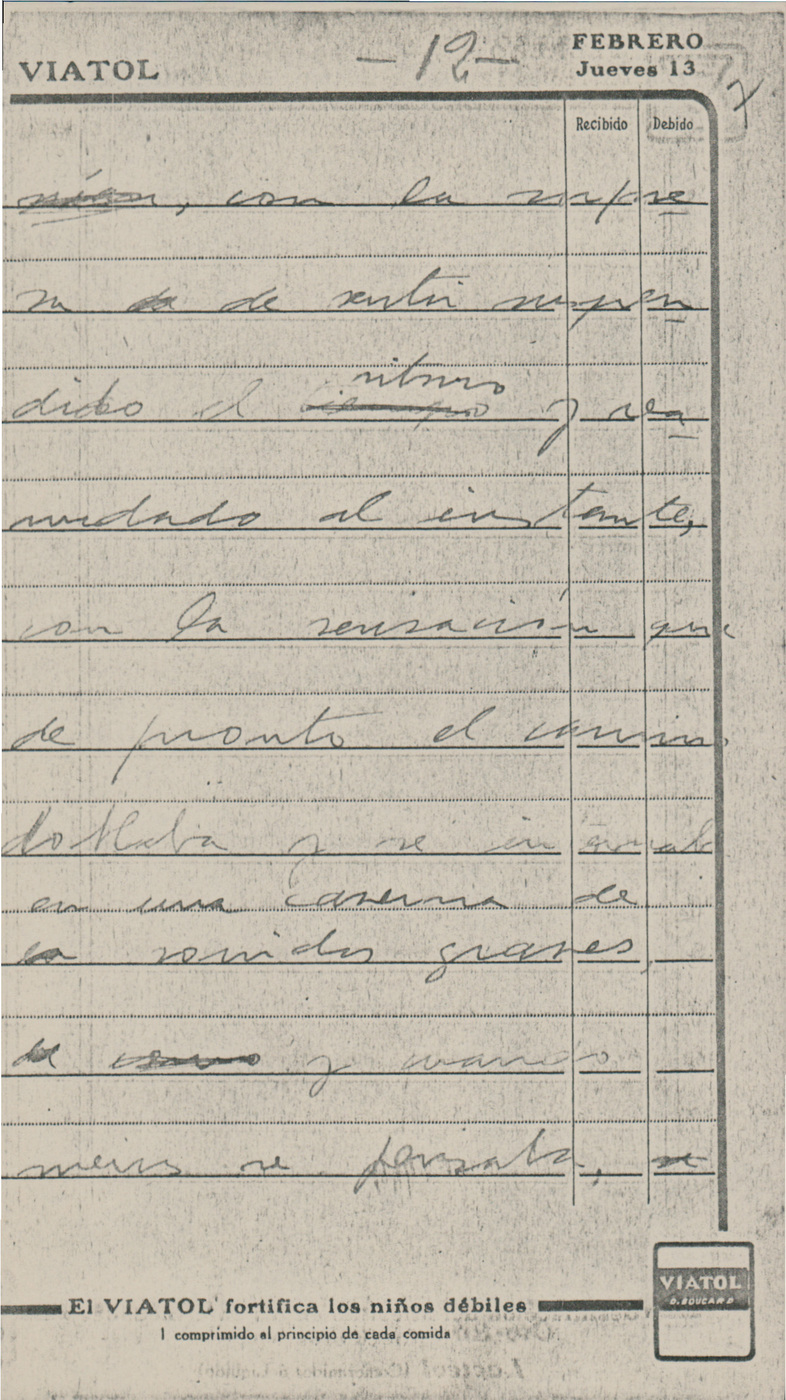 VIATOL
-12-
FEBRERO
Jueves 13
7
Recibido Debido
, con la sorpre
sa de sentir suspen
dido el ritmo y rea
nudado al instante,
con la sensación que
de pronto el camino
doblaba y se internab
en una caverna de
sonidos graves,
y cuando
menos se pensaba, se
VIATOL
D. BOUCARD
El VIATOL fortifica los niños débiles
1 comprimido al principio de cada comida